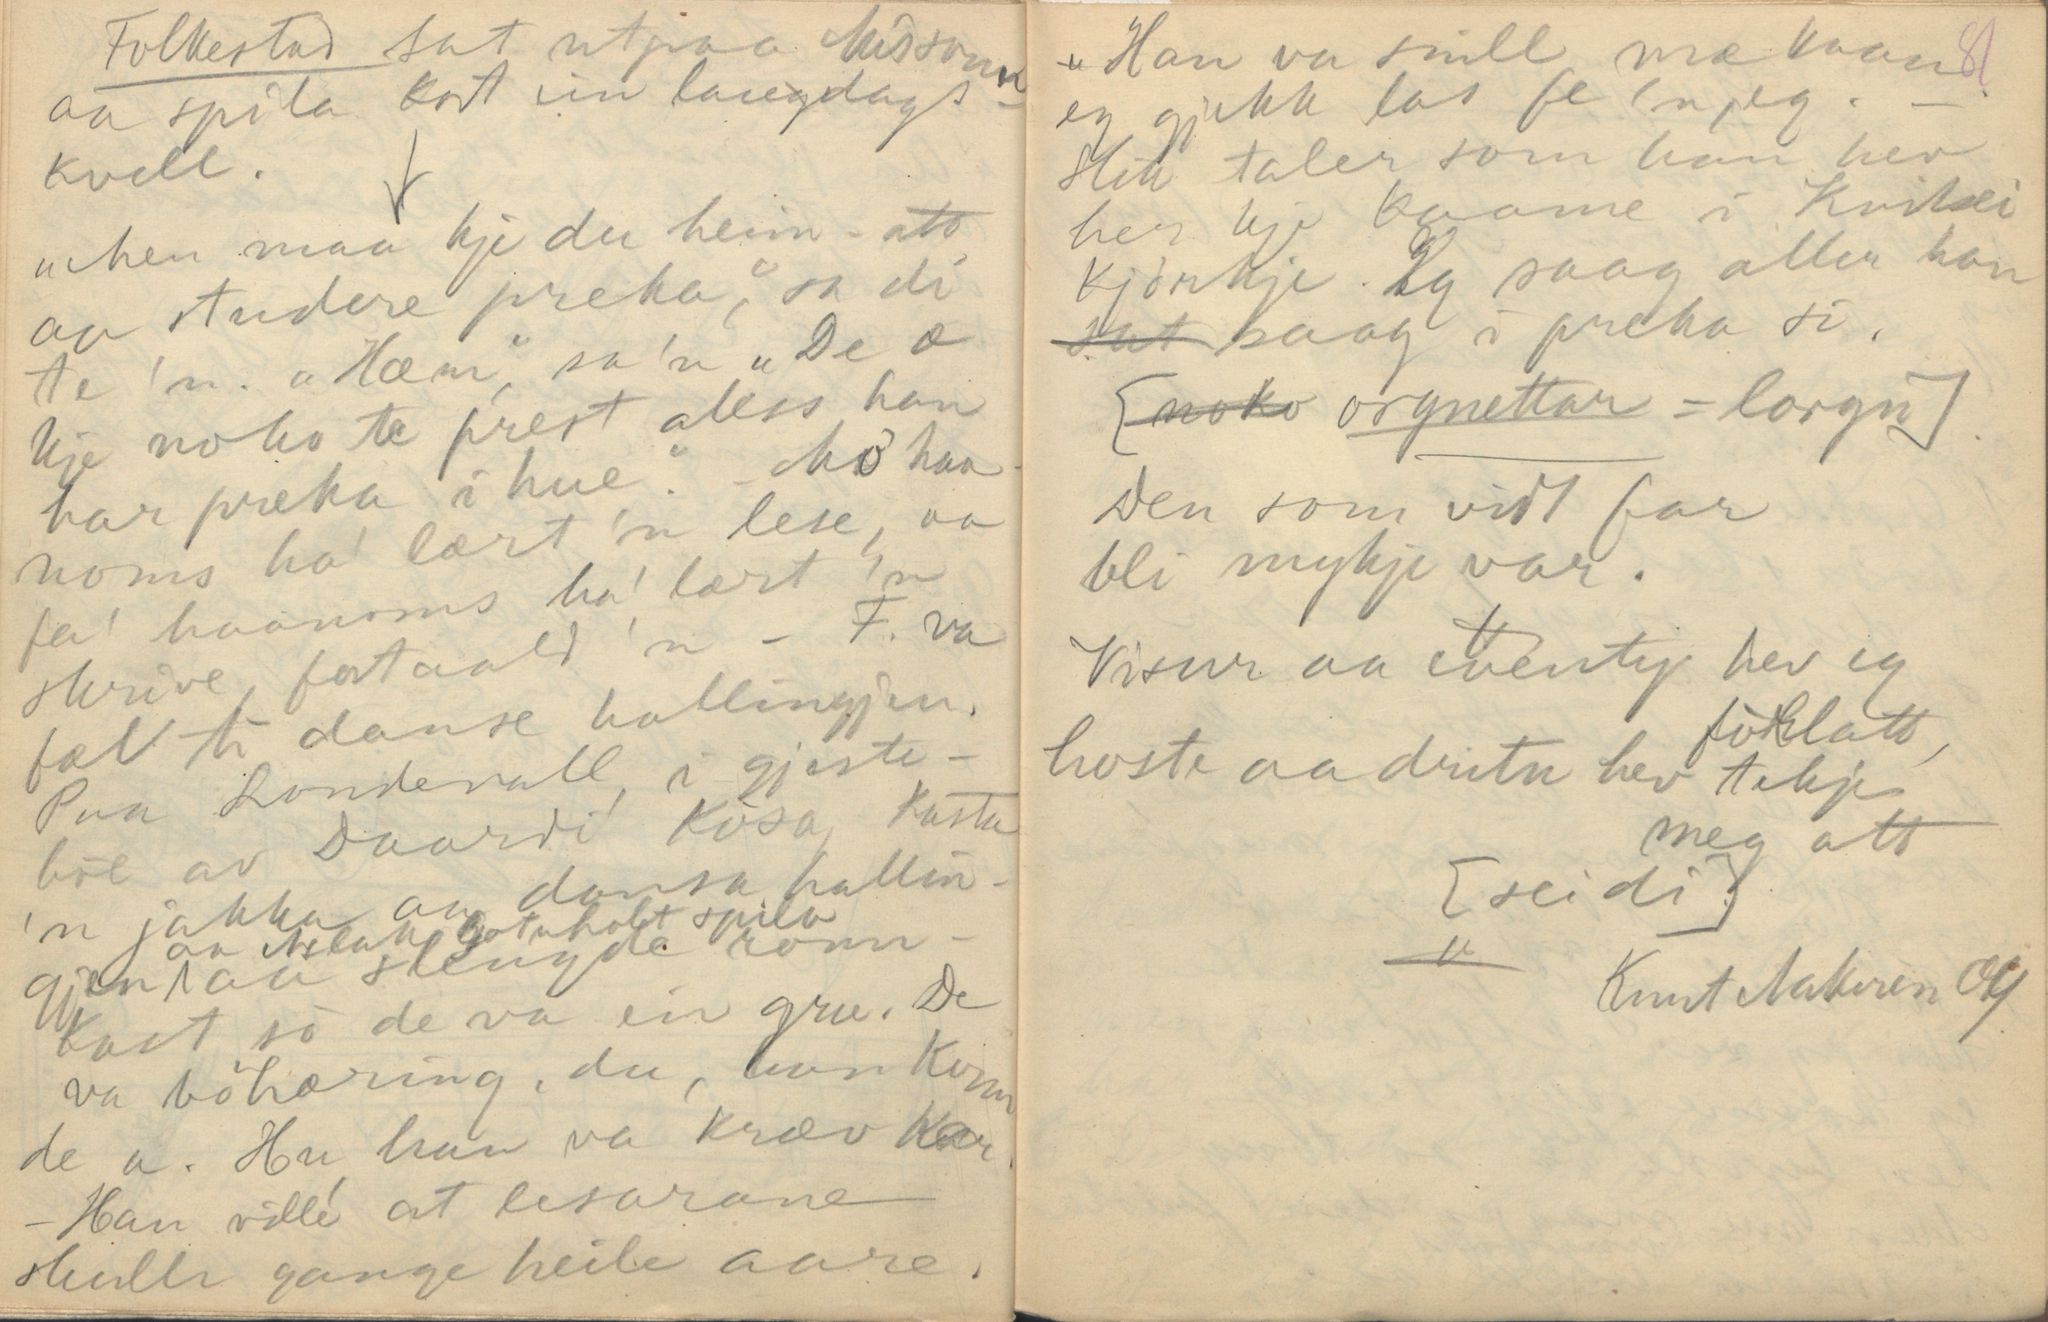 Folkestad sat utpaa Missom
aa spila kort ein laugdags-
kvell.
„hen maa kje du heim-att
aa studere preka,“ sa di
te 'n. „Hæm“, sa 'n „De æ
kje noko te prest aless han
har preka i hue.“ - Mo haa-
noms ha' lært 'n lese, aa
fa' haanoms ha' lært 'n
skrive, fortaald 'n - F. va
fæl ti danse hallingjen.
Paa Sondevall, i gjeste-
bòe av Daardi' Kòsa, kasta
'n jakka aa dansa hallin-
aa Aslak Gotuholt spila
gjen, aa slengde romn-
kast so de va ein gru. De
va böhæring, du, han kom
de a. Hu, han va kræv kar.
- Han ville' at lesarane
skulle gange heile aare.
„Han va snill mæ kaan 81
eg gjekk las fe 'n, eg. -
Slik taler som han hev
her kje kaame i Kvitsei
kjörkje. Eg saag aller han
sat saag i preka si.
[noko orgnettar = lorgn]
Den som vidt far
bli mykje var.
Visur aa eventyr hev eg
förlatt,
hoste aa driten hev tekje
meg att
[sei di]
"
Knut Nakuren Og